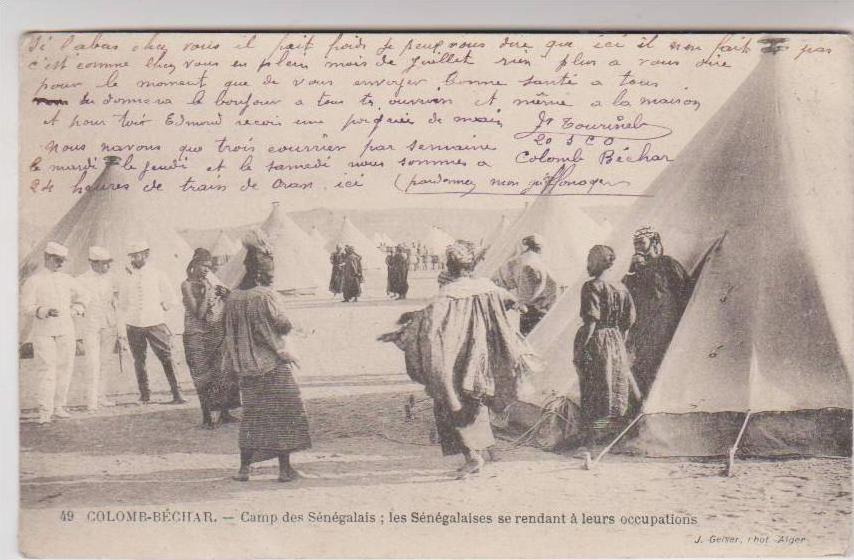 Si labas chez vous il fait froid je peux vous dire que ici il nen fait pas
c'est comme chez vous en plein mois de Juillet rien plus a vous dire
pour le moment que de vous envoyer bonne santé a tous
tu donnera le bonjour a tous et même a la maison
et pour toi Edmond recois une poignée de main
20 S C O
nous navons que trois courrier par semaine Colomb Béchar
le mardi le jeudi et le samedi nous sommes a
24 heures de train de Oran. ici (pardonnez mon
49 COLOMB-BÉCHAR. — Camp des Sénégalais ; les Sénégalaises se rendant à leurs occupations
J. Geiser, phot. Alger